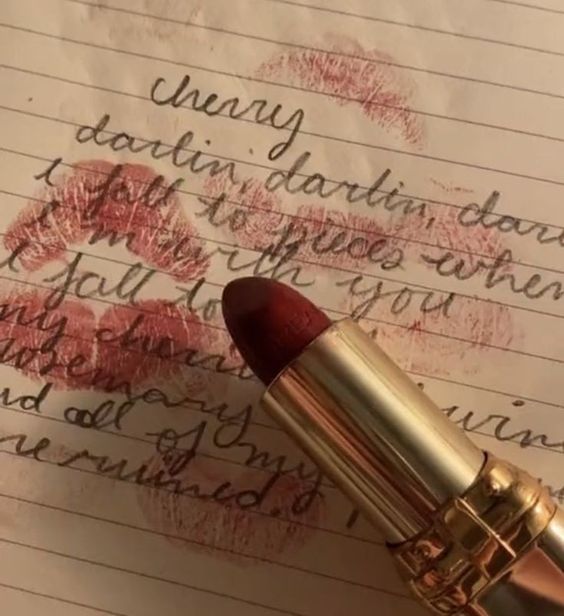 cherry
darlin, darlin, darl
i fall to pieces when
i'm with you
i fall to
my cherri wine
rosemary
nd all of my
re ruined.